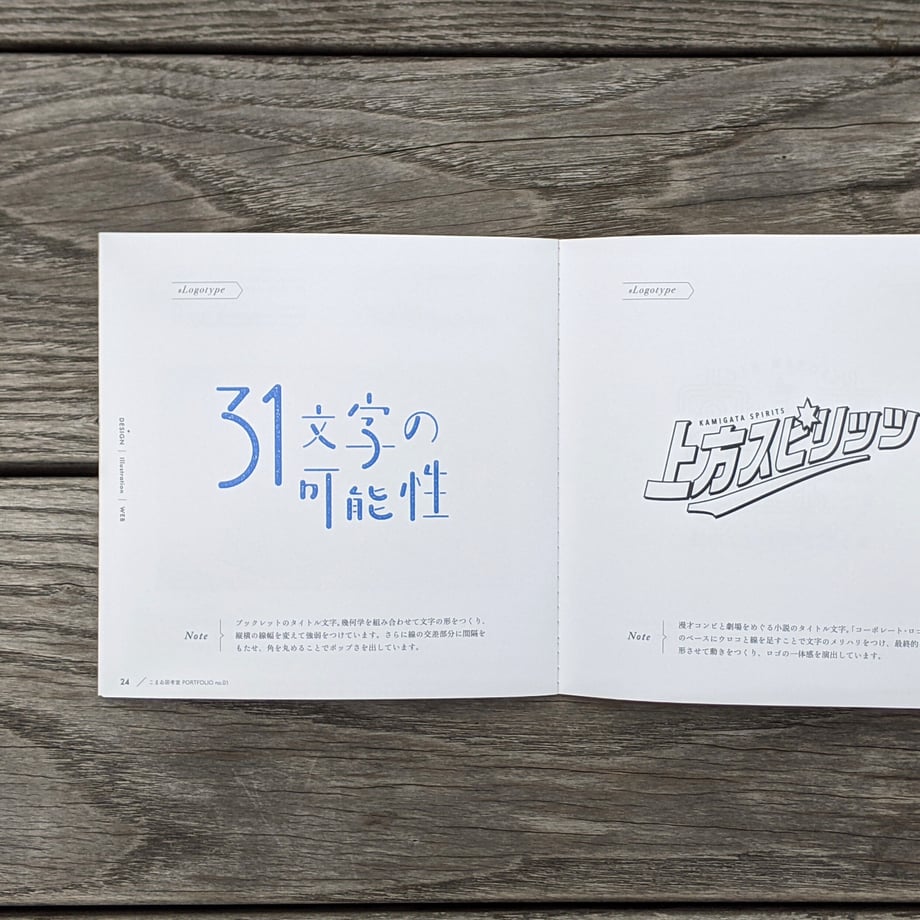 #Logotype
31文字の
可能性
DESIGN | Illustration | WEB
Note
ブックレットのタイトル文字。幾何学を組み合わせて文字の形をつくり、
縦横の線幅を変えて強弱をつけています。さらに線の交差部分に間隔を
もたせ、角を丸めることでポップさを出しています。
24
PORTFOLIO no.01
#Logotype
KAMIGATA SPIRITS
上方スピリッツ
Note
漫才コンビと劇場をめぐる小説のタイトル文字。「コーポレート・ロゴ
のベースにウロコと線を足すことで文字のメリハリをつけ、最終的
形させて動きをつくり、ロゴの一体感を演出しています。